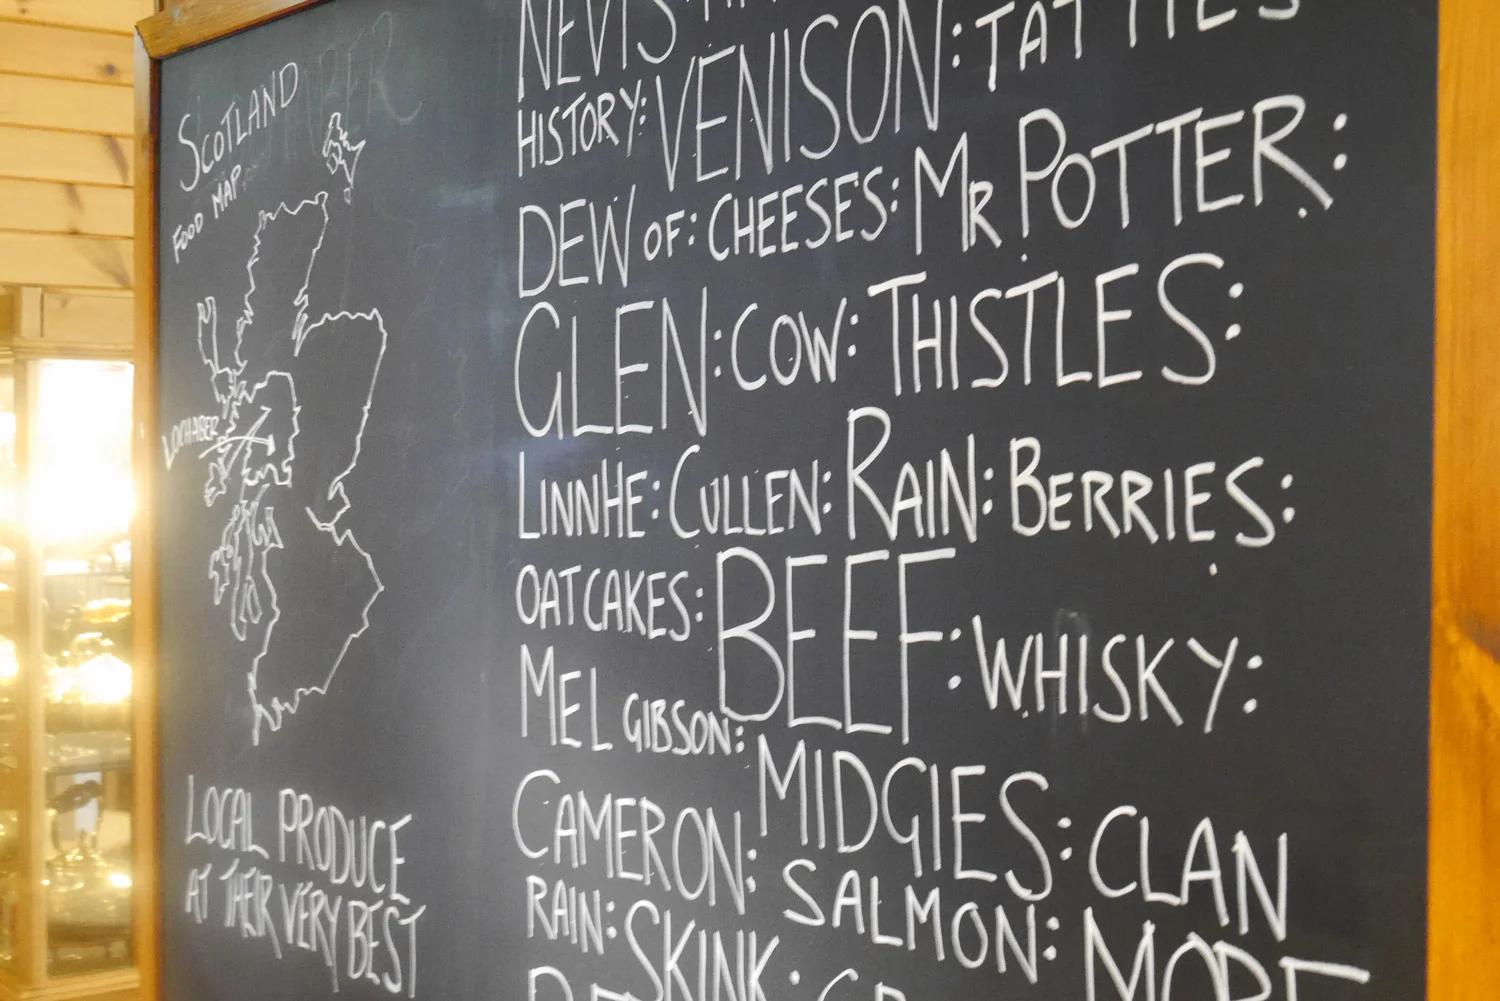 SCOTLAND
FOOD MAP
LOCHABER
LOCAL PRODUCE
AT THEIR VERY BEST
NEVIS
HISTORY: VENISON: TATTIES
DEW OF: CHEESES: MR POTTER:
GLEN: COW: THISTLES:
LINNHE: CULLEN: RAIN: BERRIES:
OATCAKES: BEEF: WHISKY:
MEL GIBSON: MIDGIES: CLAN
CAMERON: SALMON: MORE
RAIN: SKINK: